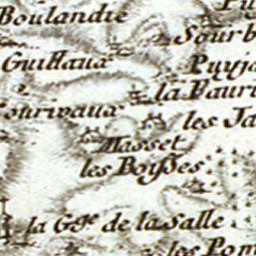 Boulandie
Sourb
Guillaux
Puyja
la Vauri
Sourivaux
les Ja
Masset
les Boysses
la Gge de la Salle
les Pom